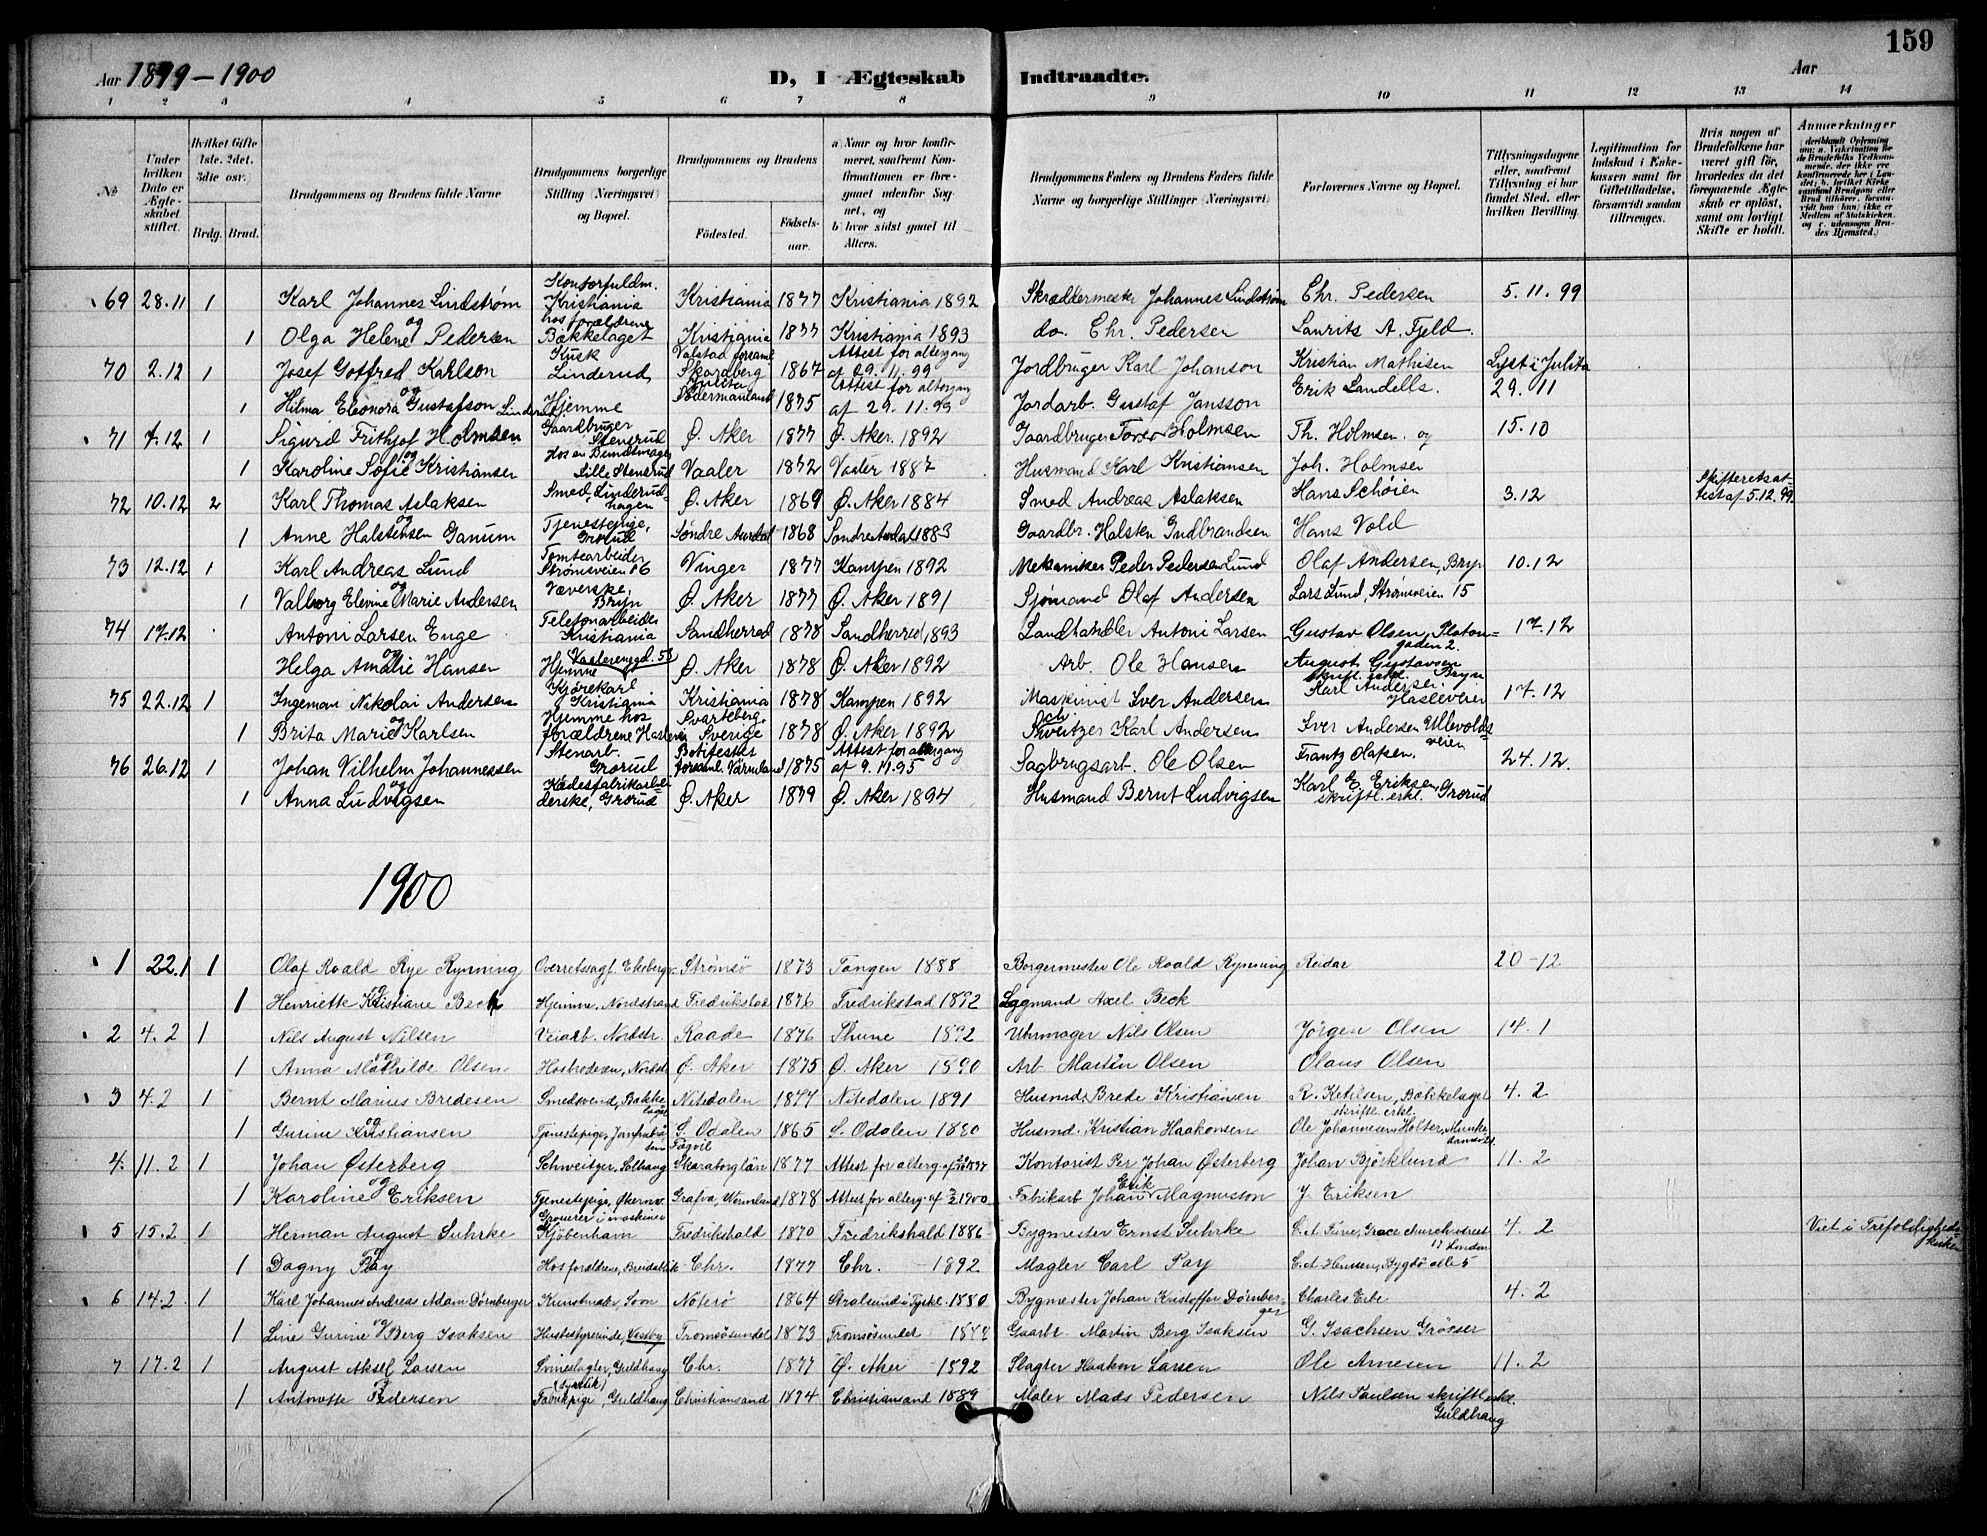 159
Aar 1899 – 1900 D, I Ægteskab Indtraadte. Aar
1 2 3 4 5 6 7 8 9 10 11 12 13 14
No
Under hvilken Dato er Ægteskabet stiftet.
Hvilket Gifte 1ste. 2det. 3die osv.)
Brdg. Brud.
Brudgommens og Brudens fulde Navne
Brudgommens borgerlige Stilling (Næringsvei) og Bopæl.
Brudgommens og Brudens
Fødested. Fødselsaar.
a) Naar og hvor konfirmeret, saafremt Konfirmationen er foregaaet udenfor Sognet, og b) hvor sidst gaaet til Alters.
Brudgommens Faders og Brudens Faders fulde Navne og borgerlige Stillinger (Næringsvei)
Forlovernes Navne og Bopæl.
Tillysningsdagene eller, saafremt Tillysning ei har fundet Sted, efter hvilken Bevilling.
Legitimation for Indskud i Enkekassen samt for Giftetilladelse, forsaavidt saadan tiltrænges.
Hvis nogen af Brudefolkene har været gift før, hvorledes da det foregaaende Ægteskab er opløst, samt om lovligt Skifte er holdt.
Anmærkninger
69 28.11 1 Karl Johannes Lindstrøm Kontorfuldm. Kristiania Kristiania 1877 Kristiania 1892 Skræddermester Johannes Lindstrøm Chr. Pedersen 5.11.99
1 og Olga Helene Pedersen hos forældrene Bækkelaget Kristiania 1877 Kristiania 1893 do. Chr. Pedersen Laurits A. Fjeld.
70 2.12 1 Josef Gotfred Karlson Kusk Linderud Skardberg 1867 Attest for altergang af 29.11.99 Jordbruger Karl Johanson Kristian Mathisen Lyst i Julita
1 og Hilma Eleonora Gustafson Linderud Hjemme Julita Södermanland 1875 Attest for altergang af 29.11.99 Jordarb. Gustaf Jansson Erik Landells. 29.11
71 7.12 1 Sigurd Frithjof Holmsen Gaardbruger Stensrud Ø. Aker 1877 Ø. Aker. 1892 Gaardbruger Holmsen Th. Holmsen og 15.10
1 og Karoline Sofie Kristiansen Lille Stensrud Vaaler 1872 Vaaler 1887 Husmand Karl Kristiansen Joh. Holmsen
72 10.12 2 Karl Thomas Aslaksen Smed, Linderudhagen Ø. Aker 1869 Ø. Aker 1884 Smed Andreas Aslaksen Hans Schøien 3.12 Skifteretsattest af 5.12.99
1 og Anne Halstensen Ganum Tjenestepige, Grorud Søndre Aurdal 1868 Søndre Aurdal 1883 Gaardbr. Halsten Gudbrandsen Hans Vold
73 12.12 1 Karl Andreas Lund Tomtearbeider Strømsveien 16 Vinger 1877 Kampen 1892 Mekaniker Peder Pedersen Lund Olaf Andersen, Bryn 10.12
1 og Valborg Elevine Marie Andersen Væverske, Bryn Ø. Aker 1877 Ø. Aker 1891 Sjømand Olaf Andersen Lars Lund, Strømsveien 15
74 17.12 Antoni Larsen Enge Telefonarbeider Kristiania Sandherred 1878 Sandherred 1893 Landhandler Antoni Larsen Gustav Olsen, Platongaden 2. 17.12
og Helga Amalie Hansen Vaalerenggd. 53 Hjemme Ø. Aker 1878 Ø. Aker 1892 Arb. Ole Hansen August Gustavsen skriftl. erkl. Bryn
75 22.12 1 Ingeman Nikolai Andersen Kjørekarl Kristiania Kristiania 1878 Kampen 1892 Maskinist Sver Andersen Karl Andersen. Hasleveien 17.12
1 og Brita Marie Karlsen Hjemme hos forældrene Haslevei Svarteborg, Sverige 1878 Ø. Aker 1892 Schweitzer Karl Andersen Sver Andersen Ullevoldsveien
76 26.12 1 Johan Vilhelm Johannessen Stenarb. Grorud forsaml. Värmland 1875 Attest for altergang af 9.11.95 Sagbrugsarb. Ole Olsen Frantz Olafsen. 24.12.
1 og Anna Ludvigsen Kædesfabrikarbeiderske, Grorud Ø. Aker 1879 Ø. Aker 1894 Husmand Bernt Ludvigsen Karl E. Eriksen, Grorud skriftl. erkl.
1900
1 22.1 1 Olaf Roald Rye Rynning Overretssagf. Ekebergv. Strømsø 1873 Tangen 1888 Borgermester Ole Roald Rynning Reidar 20-12
1 og Henriette Kristiane Beck Hjemme. Nordstrand Fredrikstad 1876 Fredrikstad 1892 Lagmand Axel Beck
2 4.2 1 Nils August Nilsen Veiarb. Nordstr. Raade 1876 Thune 1892 Uhrmager Nils Olsen Jörgen Olsen 14.1
1 og Anna Mathilde Olsen Hos broderen, Nordst. Ø. Aker 1875 Ø. Aker 1890 Arb Martin Olsen Olaus Olsen
3 4.2 1 Bernt Marius Bredesen Smedsvend, Bækkelaget Nitedalen 1877 Nitedalen 1891 Husmd. Brede Kristiansen R. Ketilsen, Bækkelaget skriftl. erkl. 4.2
1 og Gurine Kristiansen Tjenestepige, S. Odalen 1865 S. Odalen 1880 Husmd. Kristian Haakonsen Ole Johannesen Holter, Munkedamsv.
4. 11.2 1 Johan Østerberg Schweitzer, Solhaug Skaraborg län 1877 Attest for alterg. Kontorist Per Johan Østerberg Johan Björklund 11.2
1 og Karoline Eriksen Tjenestepige, Økernv. Grafva, Wermland 1878 Attest for alterg. af 1900 Fabrikarb Johan Erik Magnusson J. Eriksen
5 15.2 1 Herman August Suhrke Kjöbenhavn Fredrikshald 1870 Fredrikshald 1886 Bygmester Ernst Suhrke Grace church street 17 London 4.2 Viet i Trefoldighedskirken
1 og Dagny Pay Hos forældrene, Breidablik Chr. 1877 Chr. 1892 Mægler Carl Pay C. A Hansen, Bygdö alle 5
6 14.2 1 Karl Johannes Andreas Adam Dörnberger Kunstmaler, Soon Nöterö 1864 Stralsund i Tyskl. 1880 Bygmester Johan Kristoffer Dörnberger Charles 4.2
1 og Line Gurine Berg Isaksen Husbestyrerinde, Vestby Tromsösundet 1873 Tromsösundet Gaarbr. Martin Berg Isaksen G. Isachsen Grösser
7 17.2 1 August Aksel Larsen Svineslagter, Guldhaug Chr. 1877 Ø. Aker 1892 Slagter Haakon Larsen Ole Arnesen 11.2
1 og Antonette Pedersen Fabrikpige, Guldhaug Christiansand 1874 Christiansand 1889 Maler Mads Pedersen Nils Paulsen skriftl. erkl. Guldhaug